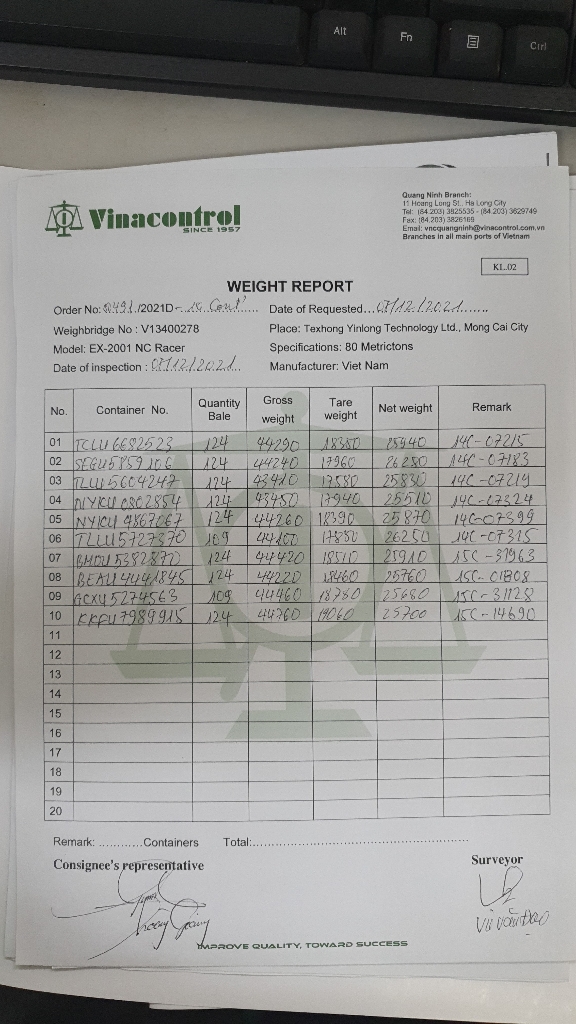 Alt
Fn
Ctrl
Vinacontrol
SINCE 1957
Quang Ninh Branch:
11 Hoang Long St., Ha Long City
Tel: (84.203) 3825535 - (84.203) 3829749
Fax: (84.203) 3826169
Email: vncquangninh@vinacontrol.com.vn
Branches in all main ports of Vietnam
KL.02
WEIGHT REPORT
Order No: 0491/2021D - Cont' Date of Requested... 07/12/2021
Weighbridge No : V13400278 Place: Texhong Yinlong Technology Ltd., Mong Cai City
Model: EX-2001 NC Racer Specifications: 80 Metrictons
Date of inspection : 07/12/2021 Manufacturer: Viet Nam
No. Container No. Quantity Bale Gross weight Tare weight Net weight Remark
01 TCLU 6682523 124 44290 18350 25940 14C-07215
02 SEGU 5859106 124 44240 17960 26280 14C-07183
03 TLLU 5604247 124 43410 17580 25830 14C-07219
04 NYKU 0802854 124 43450 17940 25510 14C-07324
05 NYKU 4867067 124 44260 18390 25870 14C-07399
06 TLLU 5727370 109 44100 17850 26250 14C-07315
07 BMOU 5382870 124 44420 18510 25910 15C-37963
08 BEAU 4441845 124 44220 18460 25760 15C-01808
09 GCXU 5274563 109 44460 18780 25680 15C-31128
10 KKFU 7989915 124 44760 19060 25700 15C-14690
11
12
13
14
15
16
17
18
19
20
Remark: ............Containers Total:......................................................
Consignee's representative Surveyor
Hoang Giang
Vũ Văn Đạo
IMPROVE QUALITY, TOWARD SUCCESS